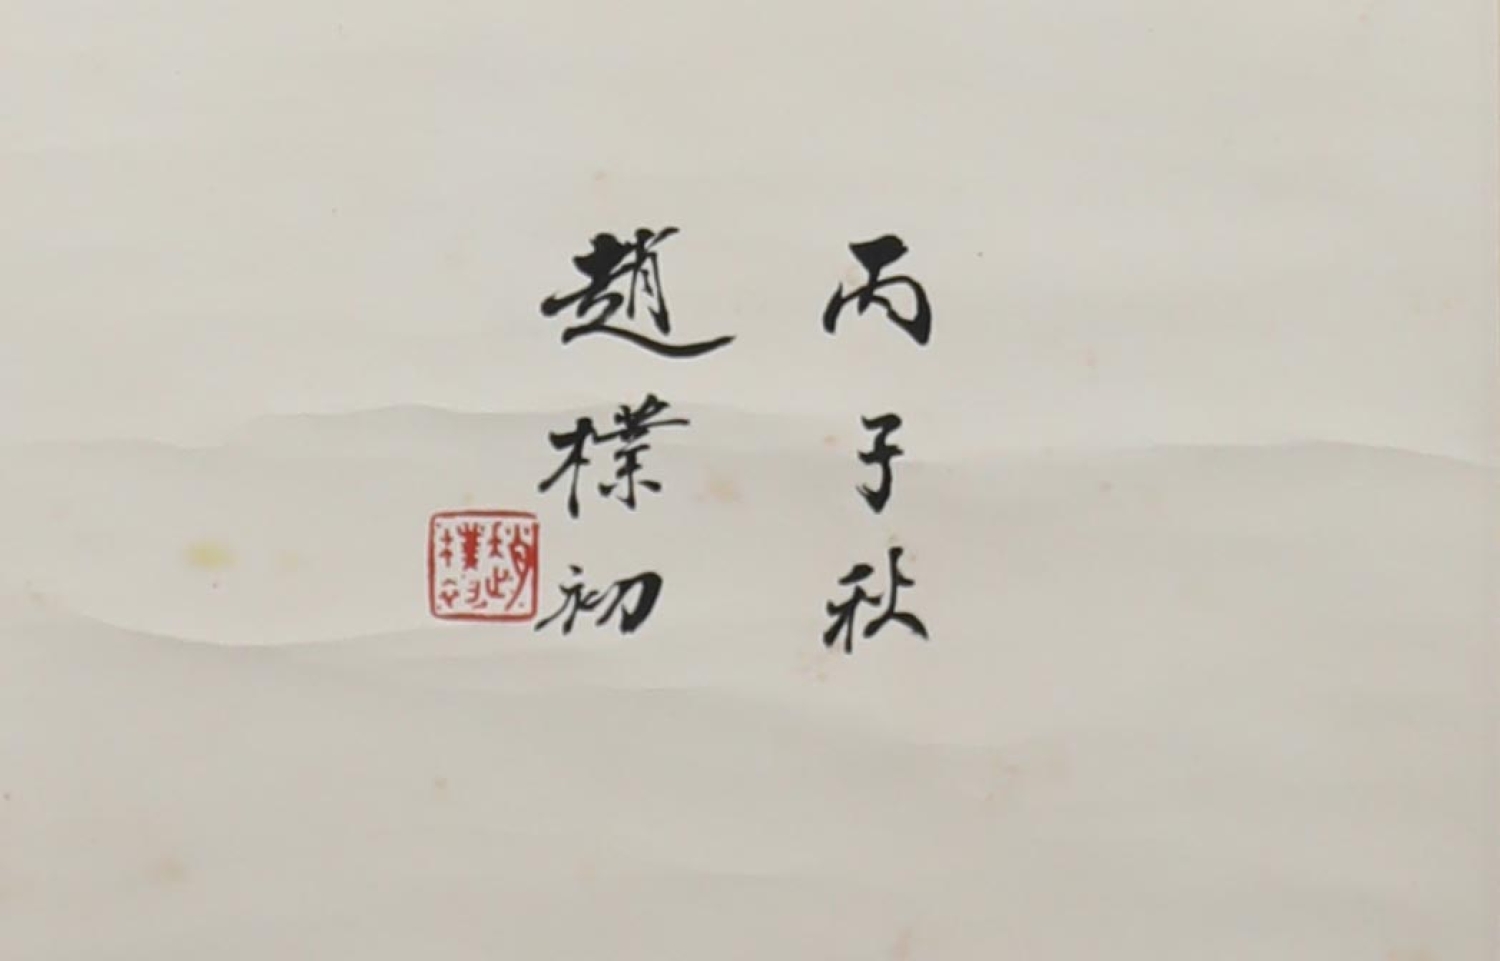 丙子秋
趙樸初
趙樸初